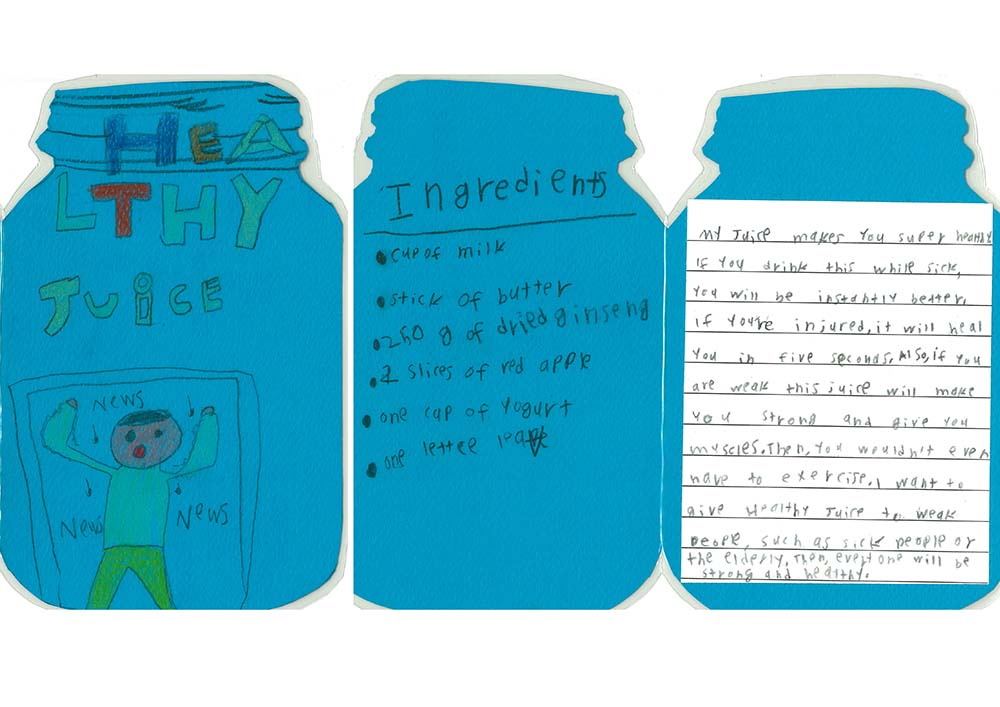 HEA
LTHY
JUiCE
News
News
News
Ingredients
cup of milk
stick of butter
250 g of dried ginseng
2 slices of red apple
one cup of Yogurt
one lettee leave
My Juice makes You super healthy
If You drink this while sick,
You will be instantly better.
if You're injured, it will heal
You in five seconds. Also, if You
are weak this juice will make
You strong and give You
muscles. Then, You wouldn't even
have to exercise. I want to
give Healthy Juice to weak
People, such as sick people or
the elderly. Then, everyone will be
strong and healthy.